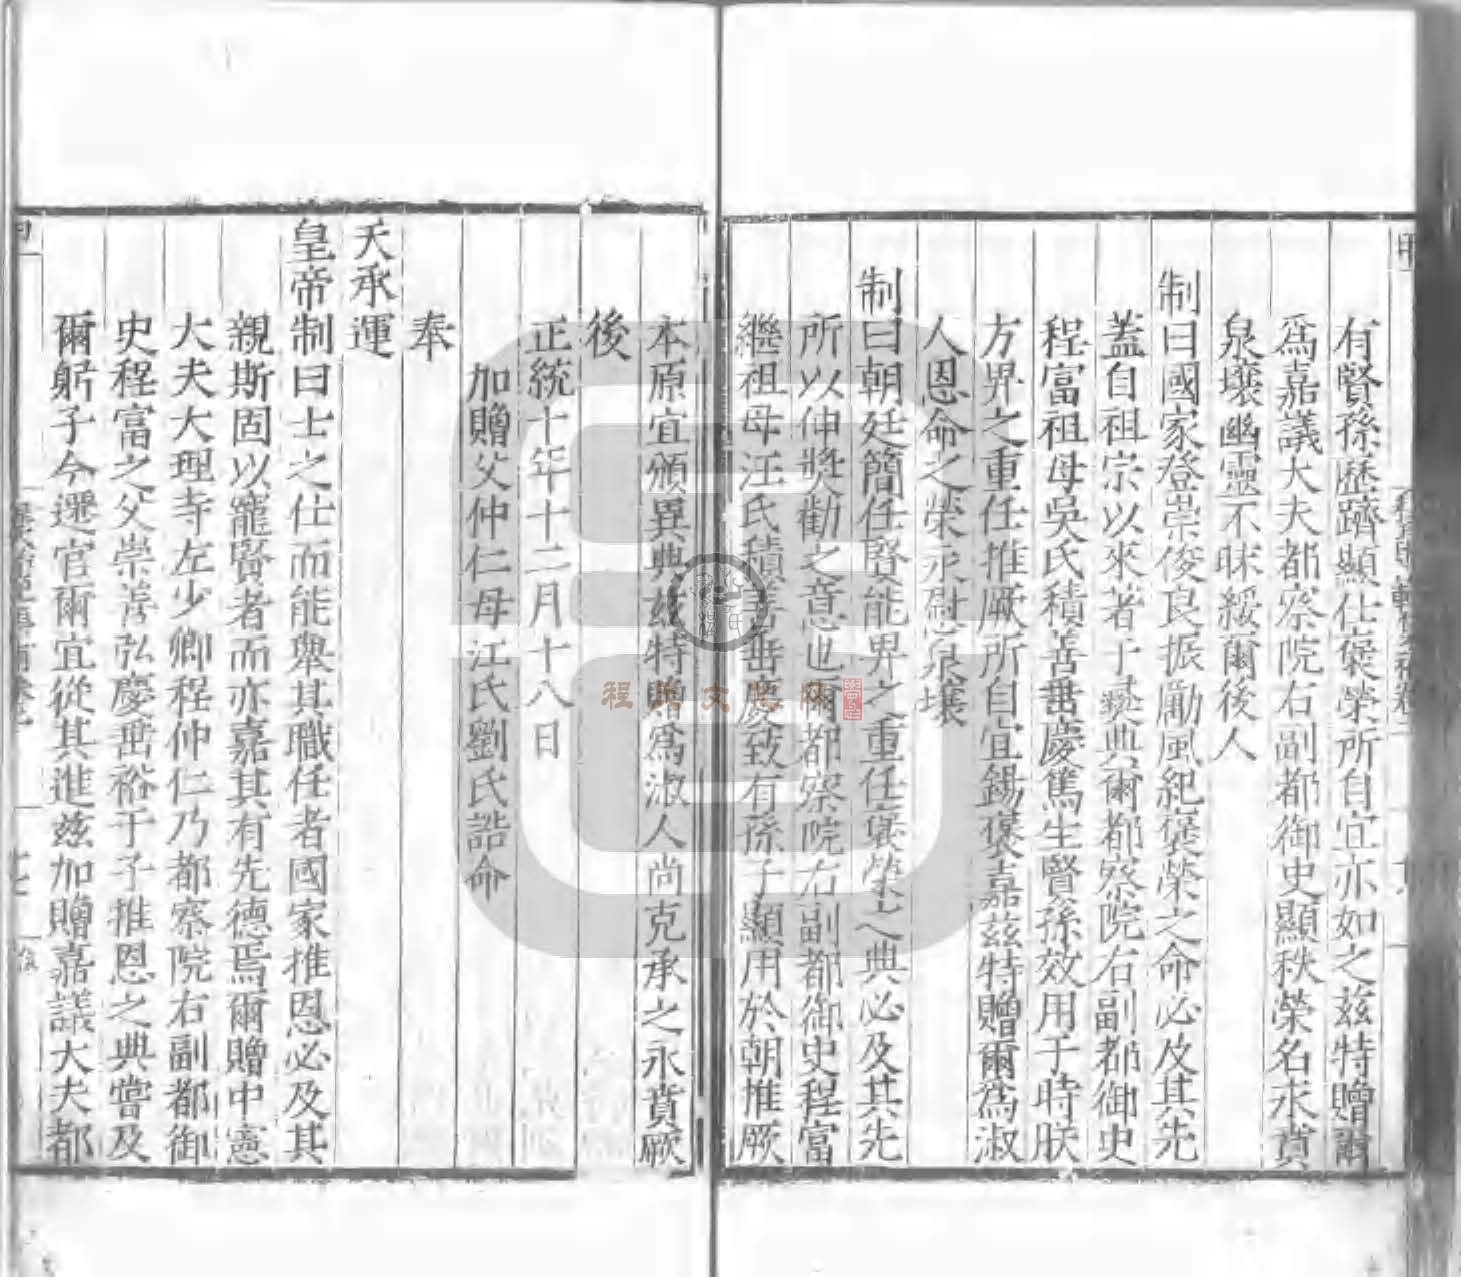 有賢孫歷躋顯仕褒榮所自宜亦如之兹特贈爾
爲嘉議大夫都察院右副都御史顯秩榮名永賁
泉壤幽靈不昧綏爾後人
制曰國家登崇俊良振勵風紀褒榮之命必及其先
蓋自祖宗以來著于彝典爾都察院右副都御史
程富祖母吳氏積善畨慶篤生賢孫效用于時朕
方畀之重任推厥所自宜錫褒嘉兹特贈爾爲淑
人恩命之榮永慰泉壤
制曰朝廷簡任賢能畀之重任褒榮之典必及其先
所以伸奬勸之意也爾都察院右副都御史程富
繼祖母汪氏積善畨慶致有孫子顯用於朝推厥
本原宜頒異典兹特贈爲淑人尚克承之永賁厥
後
正統十年十二月十八日
加贈父仲仁母江氏劉氏誥命
奉
天承運
皇帝制曰士之仕而能舉其職任者國家推恩必及其
親斯固以寵賢者而亦嘉其有先德焉爾贈中憲
大夫大理寺左少卿程仲仁乃都察院右副都御
史程富之父崇善弘慶畨裕于子推恩之典嘗及
爾躬子今遷官爾宜從其進兹加贈嘉議大夫都
程氏文化網